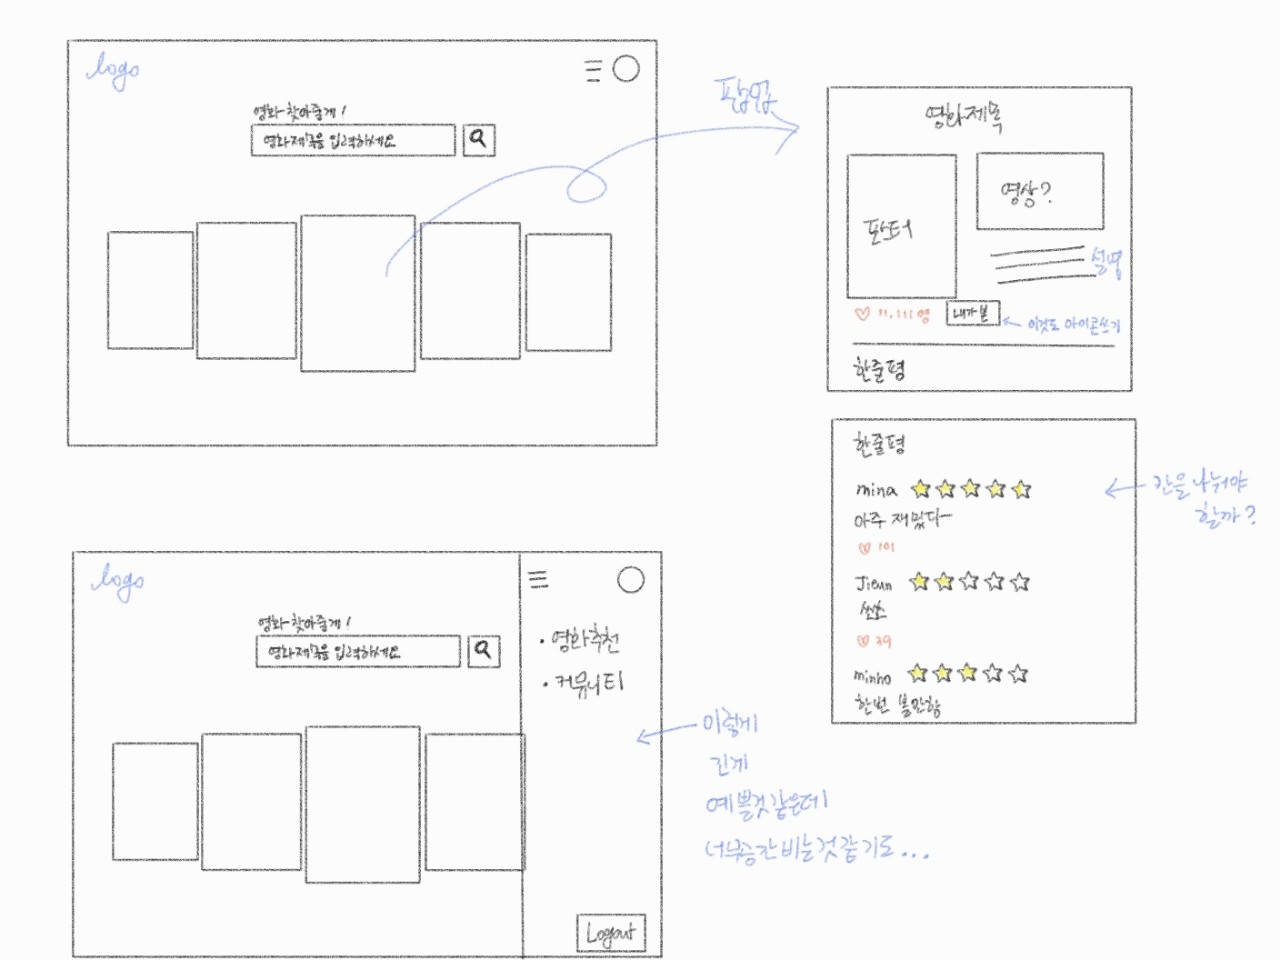 logo
영화 찾아줄게!
영화제목을 입력하세요
팝업
영화제목
포스터
영상?
설명
11,111명
내가 본
이것도 아이콘쓰기
한줄평
한줄평
mina
아주 재밌다~
101
Jieun
쏘쏘
39
minho
한번 볼만함
칸을 나눠야
할까?
logo
영화 찾아줄게!
영화제목을 입력하세요
• 영화추천
• 커뮤니티
Logout
이렇게
긴게
예쁠것같은데
너무공간비는것같기도...